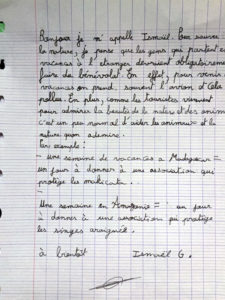 Bonjour je m'appelle Ismaël. Pour sauver
la nature, je pense que les gens qui partent en
vacances à l'étranger devraient obligatoirement
faire de bénévolat. En effet, pour venir en
vacances on prend souvent l'avion et cela
pollue. En plus, comme les touristes viennent
pour admirer la beauté de la nature et des animaux
c'est un peu normal d'aider les animaux et la
nature qu'on admire.
Par exemple :
- une semaine de vacances à Madagascar =
un jour à donner à une association qui
protège les
-
Une semaine en Amazonie = un jour
à donner à une association qui protège
les singes araignées.
à bientôt Ismaël G.